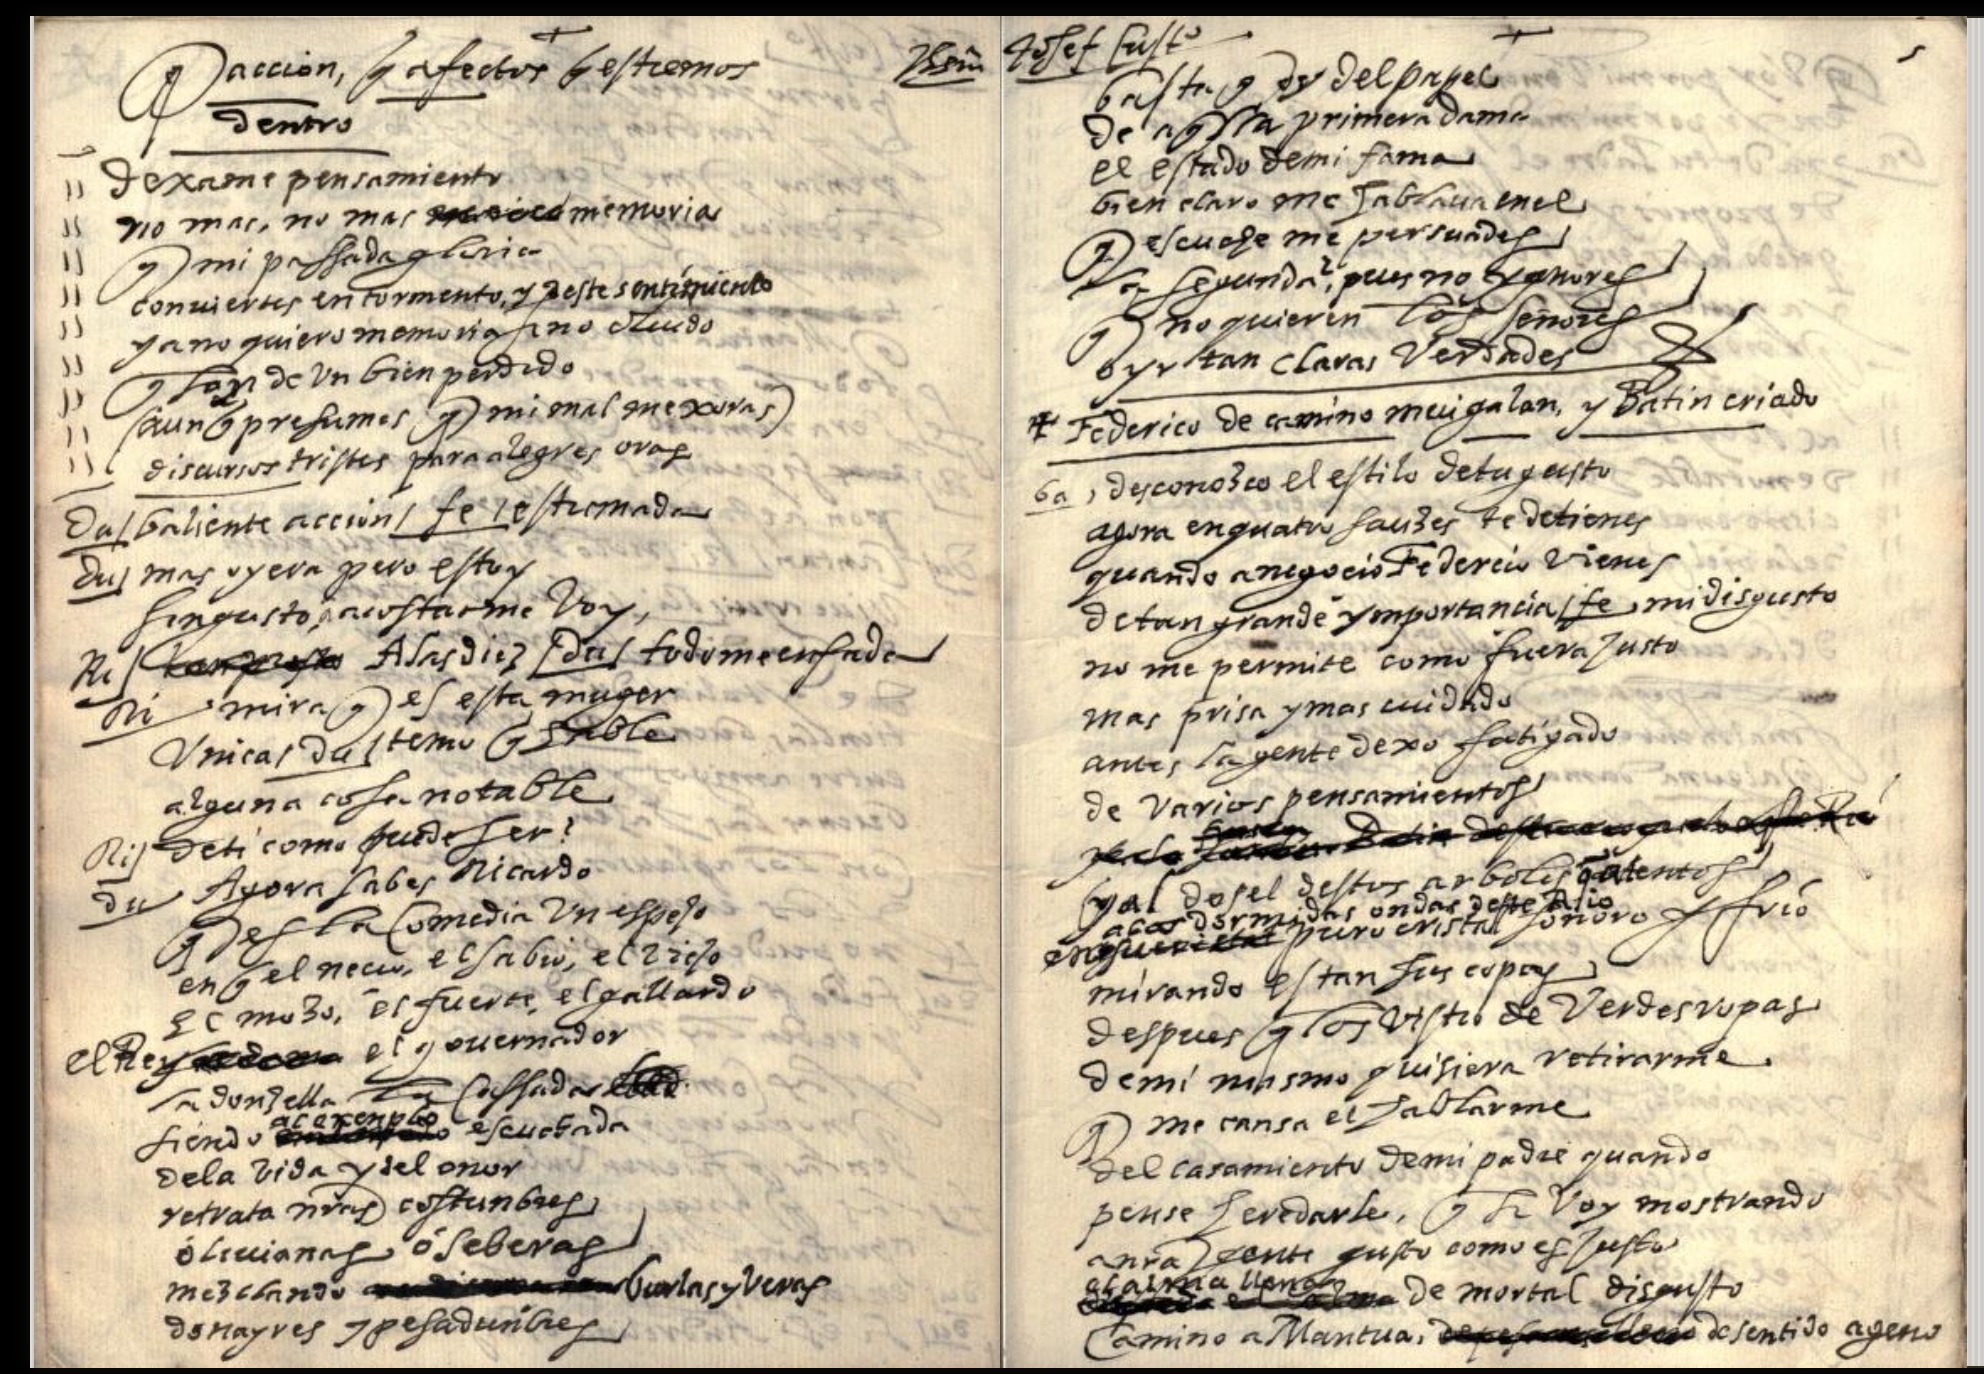 q accion, q afectos q estremos
dentro
dexame pensamiento
no mas, no mas memoria
q mi passada gloria
conuiertes en tormento, y deste sentimiento
ya no quiero memoria sino oluido
q son de vn bien perdido
(aunq presumes q mi mal mexoras)
discursos tristes para alegres oras
du/ baliente accion / fe / estremada
du/ mas oyera pero estoy
sin gusto, acostarme voy,
Ri/ A las diez / du/ todo me enfada
Ri mira q es esta muger
vnica / du/ temo q hable
alguna cosa notable
Ri/ de ti como puede ser?
du Agora sabes Ricardo
q es la Comedia vn espejo
en q el necio, el sabio, el viejo
el mozo, el fuerte, el gallardo
el Rey el gouernador
la donzella la cassada
siendo al exemplo escuchada
de la vida y del onor
retrata nras costunbres
o liuianas o seberas
mezclando burlas y veras
donayres y pesadunbres
Jhsus Josef Custo
5
basta q oy del papel
de aqsta primera dama
el estado de mi fama
bien claro me hablaua en el
q escuche me persuades
la segunda? pues no ygnores
q no quieren los señores
oyr tan claras verdades
Federico de camino mui galan, y Batin criado
ba, desconozco el estilo de tu gusto
agora en quatro sauzes te detienes
quando a negocio Federico vienes
de tan grande ymportancia / fe mi disgusto
no me permite como fuera justo
mas prisa y mas cuidado
antes la gente dexo fatigado
de varios pensamientos
y al dosel destos arboles q atentos
a las dormidas ondas deste Rio
en su puro cristal sonoro y frio
mirando estan sus copas
despues q los vistio de verdes ropas
de mi mismo quisiera retirarme
q me cansa el hablarme
del casamiento de mi padre quando
pense heredarle, q si voy mostrando
a nra gente gusto como es justo
el alma llena de mortal disgusto
Camino a Mantua, de sentido ageno